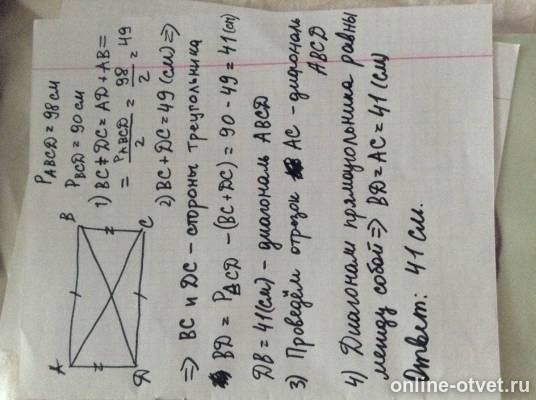 P ABCD = 98 см
P BCD = 90 см
1) BC + DC = AD + AB =
= P ABCD / 2 = 98 / 2 = 49
2) BC + DC = 49 (см) ⇒
B
C
A
D
⇒ BC и DC – стороны треугольника
BD = P BCD – (BC + DC) = 90 – 49 = 41 (см)
DB = 41 (см) – диагональ ABCD
3) Проведём отрезок AC – диагональ
ABCD
4) Диагонали прямоугольника равны
между собой ⇒ BD = AC = 41 (см)
Ответ: 41 см.
online-otvet.ru